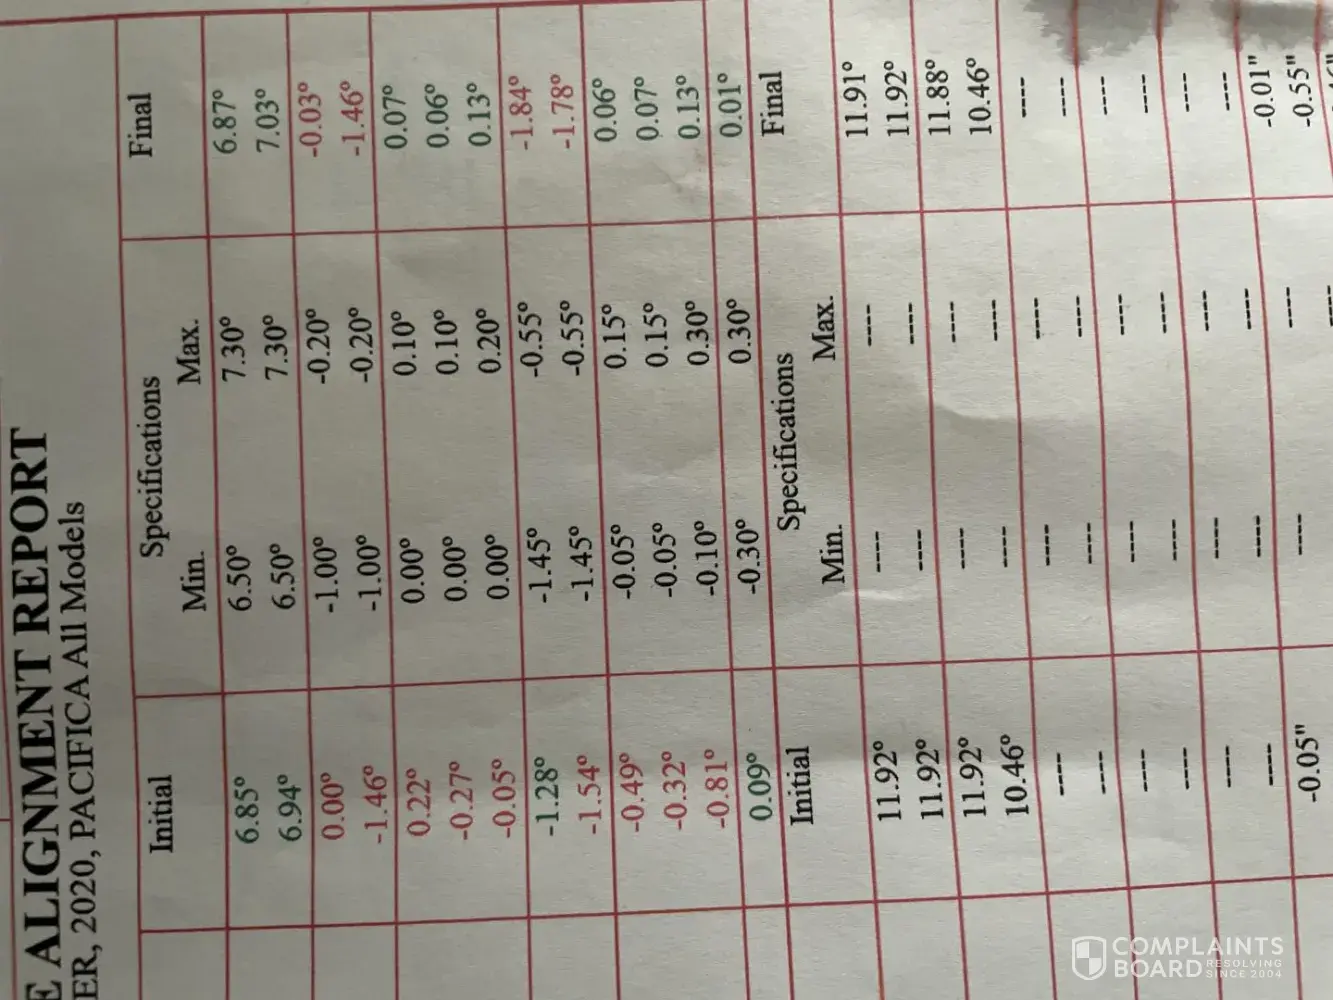 E ALIGNMENT REPORT
ER, 2020, PACIFICA All Models
Initial Specifications Final
Min. Max.
6.85° 6.50° 7.30° 6.87°
6.94° 6.50° 7.30° 7.03°
0.00° -1.00° -0.20° -0.03°
-1.46° -1.00° -0.20° -1.46°
0.22° 0.00° 0.10° 0.07°
-0.27° 0.00° 0.10° 0.06°
-0.05° 0.00° 0.20° 0.13°
-1.28° -1.45° -0.55° -1.84°
-1.54° -1.45° -0.55° -1.78°
-0.49° -0.05° 0.15° 0.06°
-0.32° -0.05° 0.15° 0.07°
-0.81° -0.10° 0.30° 0.13°
0.09° -0.30° 0.30° 0.01°
Initial Specifications Final
Min. Max.
11.92° ---- ---- 11.91°
11.92° ---- ---- 11.92°
11.92° ---- ---- 11.88°
10.46° ---- ---- 10.46°
---- ---- ---- ----
---- ---- ---- ----
---- ---- ---- ----
---- ---- ---- ----
---- ---- ---- ----
---- ---- ---- -0.01"
-0.05" ---- ---- -0.55"
COMPLAINTS
BOARD RESOLVING
SINCE 2004